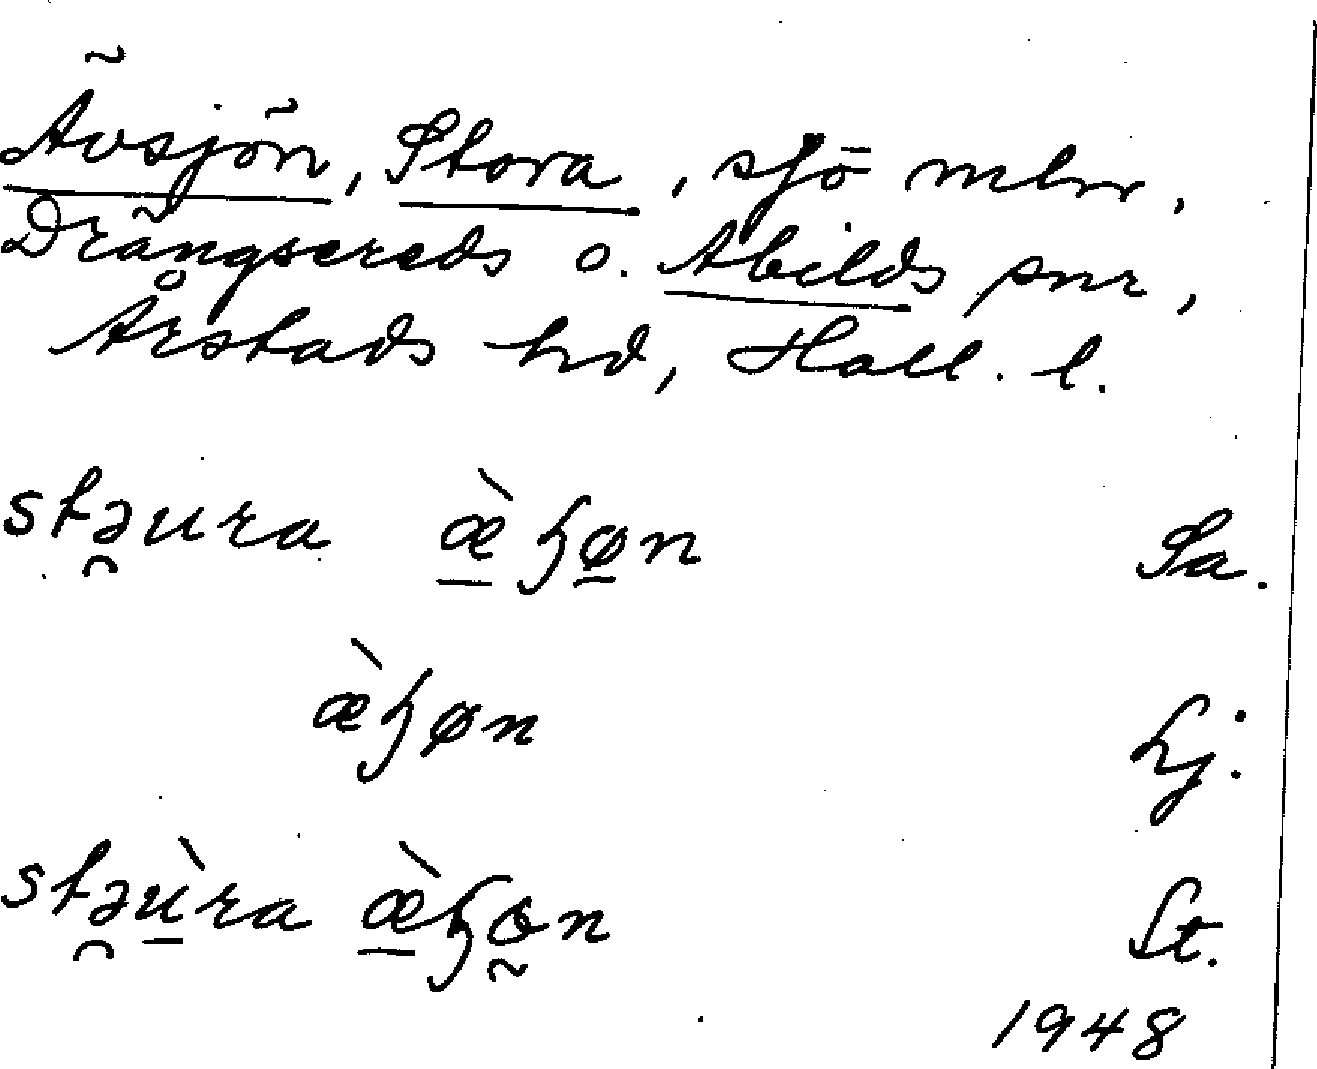 Ävsjön, Stora, sjö mlm,
Drängsereds o. Abilds snr,
Årstads hd, Hall. l.
stə̯ura æ̠̀ɧø̠n Sa.
æ̀ɧøn Lj.
stə̯ù̠ra æ̠̀ɧɵ̰n St.
1948